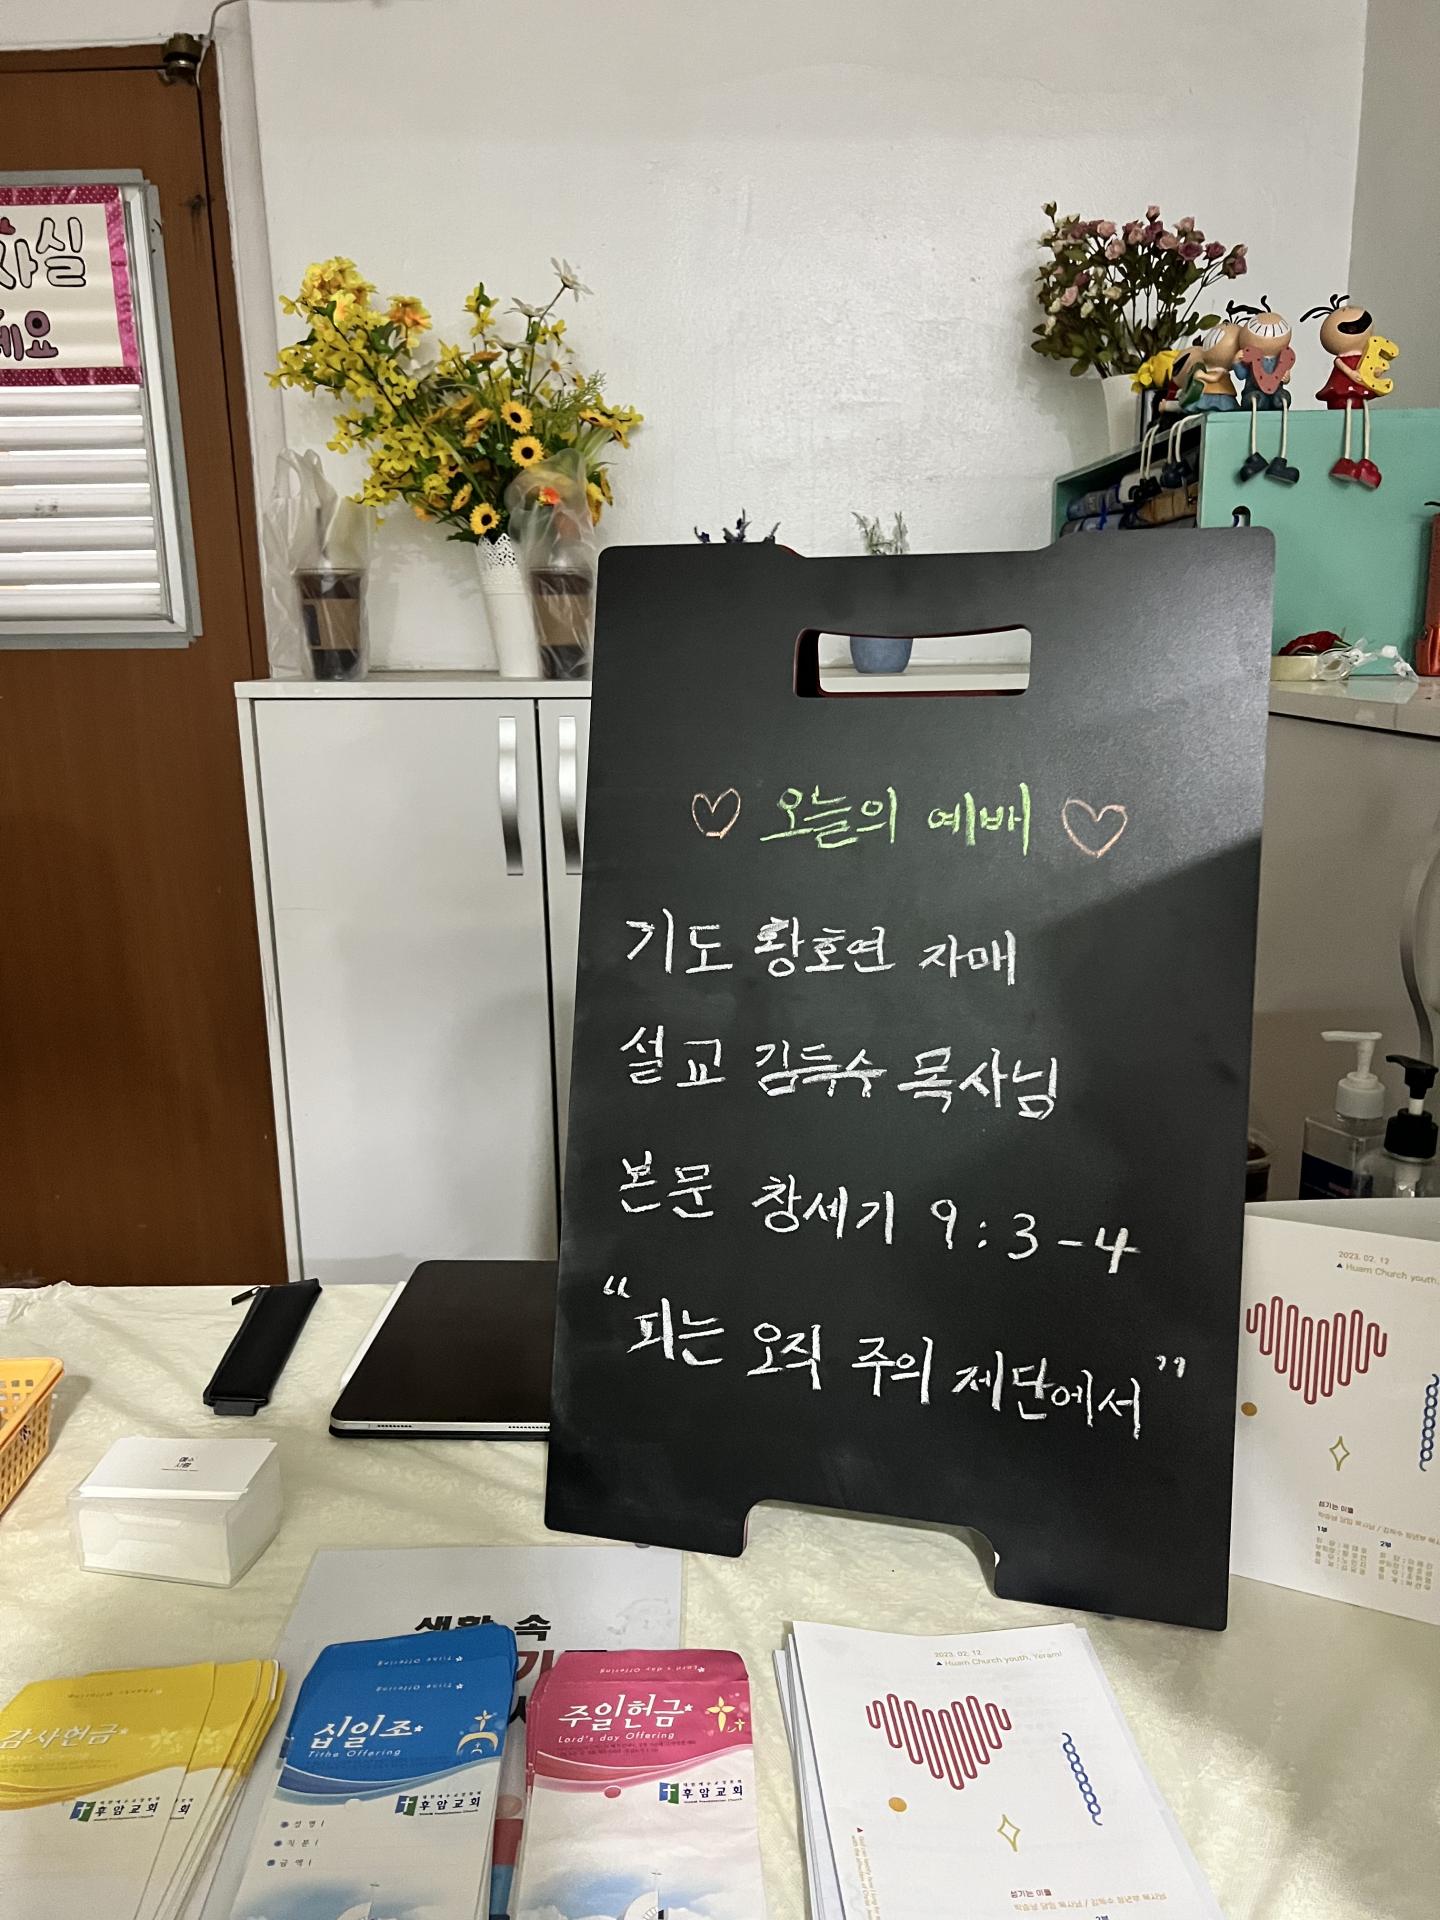 사실
세요
♡ 오늘의 예배 ♡
기도 황호연 자매
설교 김득수 목사님
본문 창세기 9:3-4
“피는 오직 주의 제단에서”
예수
사랑
2023. 02. 12
▲ Huam Church youth,
섬기는 이들
1부
2부
생활 속
감사헌금
후암교회
Tithe Offering
십일조
Tithe Offering
후암교회
성 명
직 분
금 액
Lord's day Offering
주일헌금
Lord's day Offering
후암교회
2023. 02. 12
▲ Huam Church youth, Yeram!
섬기는 이들
2부